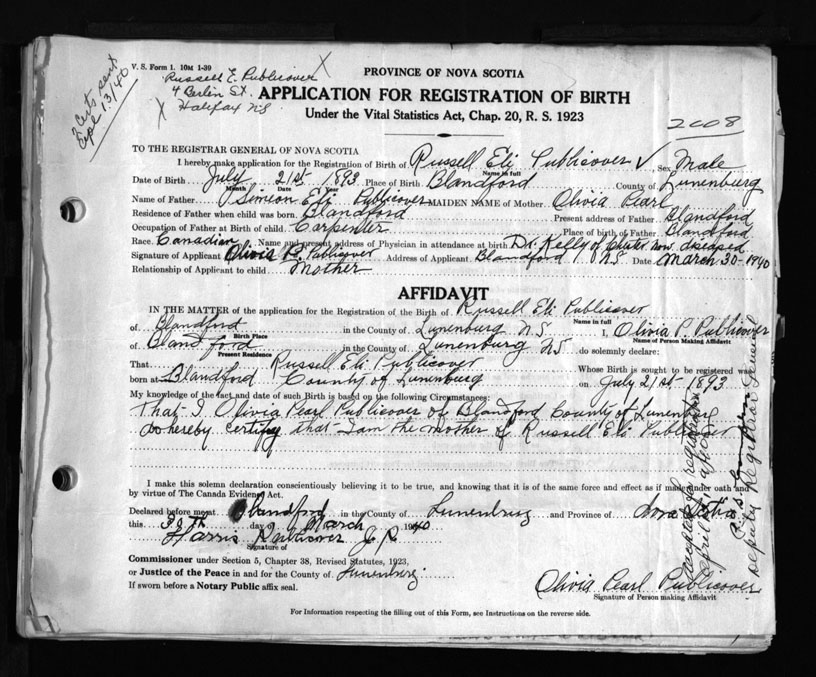 V. S. Form 1. 10M 1-39
Russell E. Publicover X
4 Berlin St.
X Halifax NS
2 certs sent
Apl 13/40
PROVINCE OF NOVA SCOTIA
APPLICATION FOR REGISTRATION OF BIRTH
Under the Vital Statistics Act, Chap. 20, R. S. 1923
2008
TO THE REGISTRAR GENERAL OF NOVA SCOTIA
I hereby make application for the Registration of Birth of Russell Eli Publicover ✓ Sex Male
Name in full
Date of Birth July 21st 1893 Place of Birth Blandford County of Lunenburg
Month Date Year
Name of Father Simeon Eli Publicover MAIDEN NAME of Mother Olivia Pearl
Residence of Father when child was born Blandford Present address of Father Blandford
Occupation of Father at Birth of child Carpenter Place of birth of Father Blandford
Race Canadian Name and present address of Physician in attendance at birth Dr. Kelly of Chester now diseased
Signature of Applicant Olivia P. Publicover Address of Applicant Blandford NS Date March 30-1940
Relationship of Applicant to child Mother
AFFIDAVIT
IN THE MATTER of the application for the Registration of the Birth of Russell Eli Publicover
Name in full
of Blandford in the County of Lunenburg NS I, Olivia P. Publicover
Birth Place Name of Person Making Affidavit
of Blandford in the County of Lunenburg NS do solemnly declare:
Present Residence
That Russell Eli Publicover Whose Birth is sought to be registered was
born at Blandford County of Lunenburg on July 21st 1893
My knowledge of the fact and date of such Birth is based on the following Circumstances:
That I Olivia Pearl Publicover of Blandford County of Lunenburg
do hereby certify that I am the mother of Russell Eli Publicover
I make this solemn declaration conscientiously believing it to be true, and knowing that it is of the same force and effect as if made under oath and
by virtue of The Canada Evidence Act.
Declared before me at Blandford in the County of Lunenburg and Province of Nova Scotia
this 30th day of March 1940
Harris Publicover J. P.
Signature of
Commissioner under Section 5, Chapter 38, Revised Statutes, 1923,
or Justice of the Peace in and for the County of Lunenburg
If sworn before a Notary Public affix seal.
Olivia Pearl Publicover
Signature of Person making Affidavit
For Information respecting the filling out of this Form, see Instructions on the reverse side.
accepted for registration
Deputy Registrar General